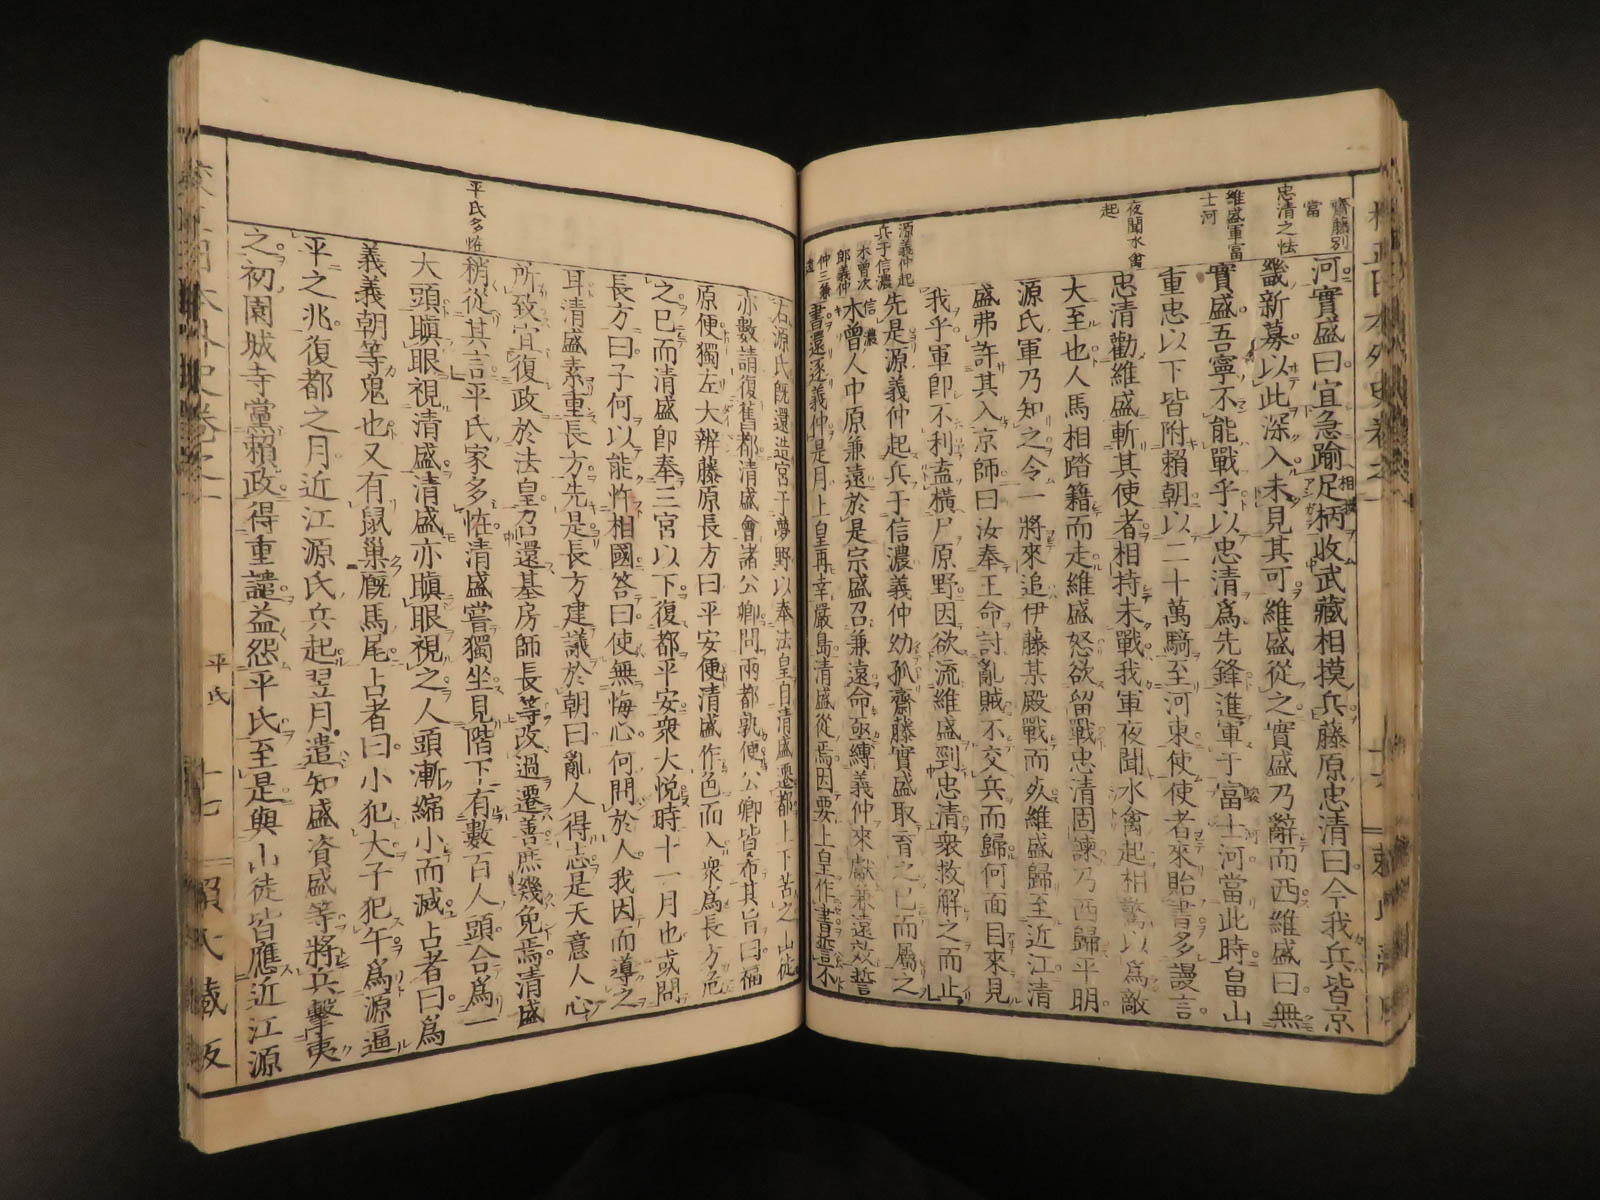 校正日本外史卷之一
齋藤別當
忠清之怯
維盛軍富士河
夜聞水禽起
源義仲起兵于信濃
木曾次郎義仲
仲三兼遠
河實盛曰宜急踰足柄收武藏相摸兵藤原忠清曰今我兵皆京
畿新募以此深入未見其可維盛從之實盛乃辭而西維盛曰無
實盛吾寧不能戰乎以忠清爲先鋒進軍于富士河當此時畠山
重忠以下皆附賴朝以二十萬騎至河東使使者來貽書多謾言
忠清勸維盛斬其使者相持未戰我軍夜聞水禽起相驚以爲敵
大至也人馬相踏籍而走維盛怒欲留戰忠清固諫乃西歸平明
源氏軍乃知之令一將來追伊藤某殿戰而死維盛歸至近江清
盛弗許其入京師曰汝奉王命討亂賊不交兵而歸何面目來見
我乎軍卽不利盍橫尸原野因欲流維盛到忠清衆救解之而止
先是源義仲起兵于信濃義仲幼孤齋藤實盛取育之已而屬之
木曾人中原兼遠於是宗盛召兼遠命亟縛義仲來獻兼遠效誓
書還逐義仲是月上皇再幸嚴島清盛從焉因要上皇作書誓不
右源氏旣還造宮于夢野以奉法皇自清盛遷都上下苦之山徒
亦數請復舊都清盛會諸公卿問兩都孰便公卿皆希其旨曰福
原便獨左大辨藤原長方曰平安便清盛作色而入衆爲長方危
之已而清盛卽奉三宮以下復都平安衆大悅時十一月也或問
長方曰子何以能忤相國答曰使無悔心何問於人我因而導之
耳清盛素重長方先是長方建議於朝曰亂人得志是天意人心
所致宜復政於法皇召還基房師長等改過遷善庶幾免焉清盛
稍從其言平氏家多怪清盛嘗獨坐見階下有數百人頭合爲一
大頭瞋眼視清盛清盛亦瞋眼視之人頭漸縮小而滅占者曰爲
義義朝等鬼也又有鼠巢廐馬尾占者曰小犯大子犯午爲源逼
平之兆復都之月近江源氏兵起翌月遣知盛資盛等將兵擊夷
之初園城寺黨賴政得重譴益怨平氏至是與山徒皆應近江源
平氏多怪
平氏
十七
賴氏藏版